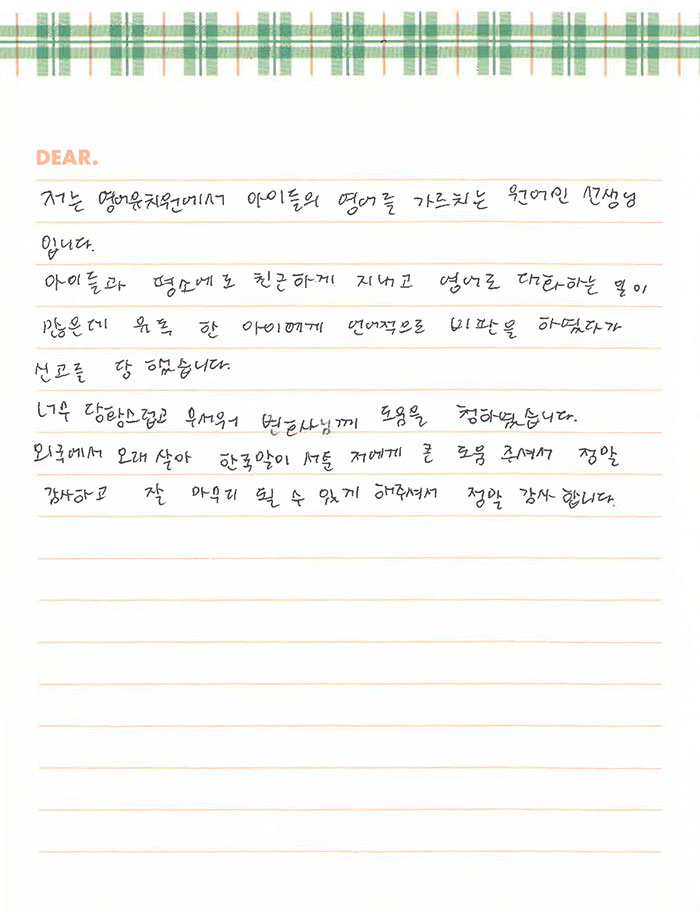 DEAR.
저는 영어유치원에서 아이들의 영어를 가르치는 원어민 선생님
입니다.
아이들과 평소에도 친근하게 지내고 영어로 대화하는 일이
많은데 유독 한 아이에게 언어적으로 비판을 하였다가
신고를 당 했습니다.
너무 당황스럽고 무서워서 변호사님께 도움을 청하였습니다.
외국에서 오래 살아 한국말이 서툰 저에게 큰 도움 주셔서 정말
감사하고 잘 마무리 될 수 있게 해주셔서 정말 감사 합니다.